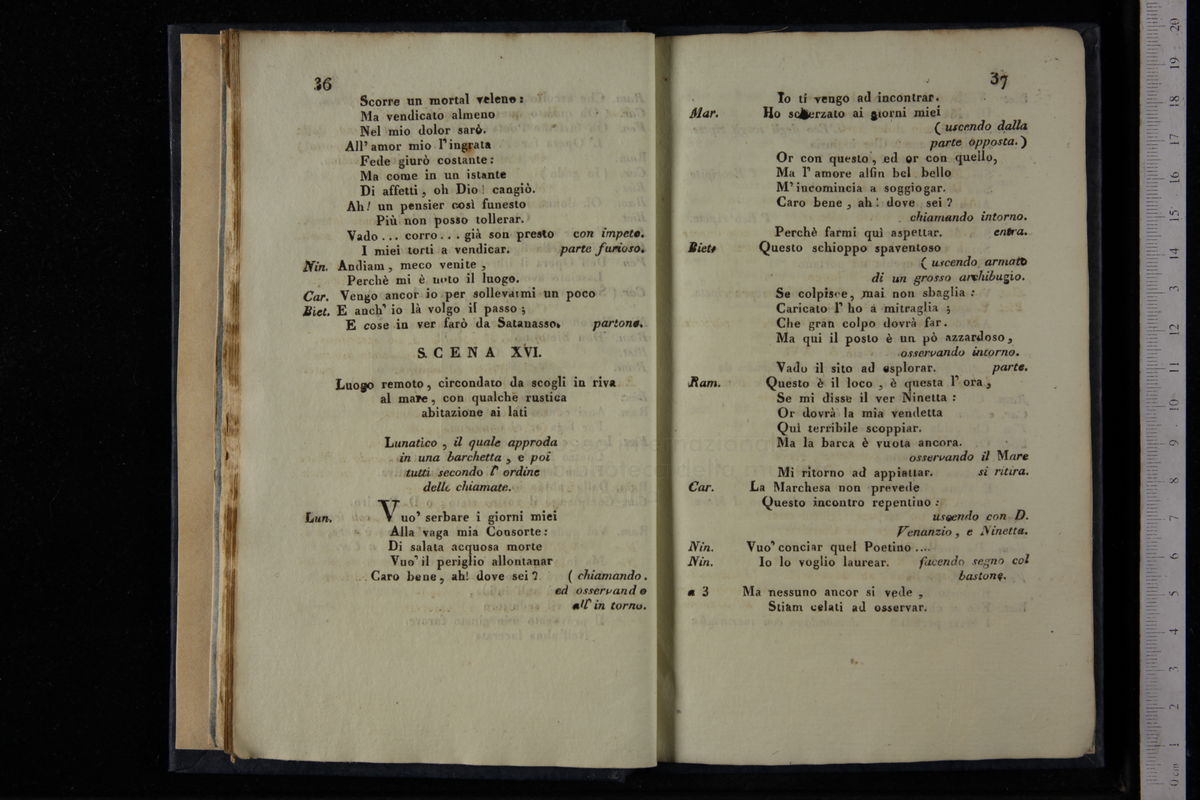 36
Scorre un mortal veleno:
Ma vendicato almeno
Nel mio dolor sarò.
All' amor mio l' ingrata
Fede giurò costante:
Ma come in un istante
Di affetti, oh Dio! cangiò.
Ah! un pensier così funesto
Più non posso tollerar.
Vado ... corro ... già son presto con impeto.
I miei torti a vendicar. parte furioso.
Nin. Andiam, meco venite,
Perchè mi è noto il luogo.
Car. Vengo ancor io per sollevarmi un poco
Biet. E anch' io là volgo il passo;
E cose in ver farò da Satanasso. partono.
SCENA XVI.
Luogo remoto, circondato da scogli in riva
al mare, con qualche rustica
abitazione ai lati
Lunatico, il quale approda
in una barchetta, e poi
tutti secondo l' ordine
delle chiamate.
Lun. Vuo' serbare i giorni miei
Alla vaga mia Consorte:
Di salata acquosa morte
Vuo' il periglio allontanar
Caro bene, ah! dove sei? (chiamando.
ed osservando
all' in torno.
37
Io ti vengo ad incontrar.
Mar. Ho scherzato ai giorni miei
(uscendo dalla
parte opposta.)
Or con questo, ed or con quello,
Ma l' amore alfin bel bello
M' incomincia a soggiogar.
Caro bene, ah! dove sei?
chiamando intorno.
Perchè farmi quì aspettar. entra.
Biet. Questo schioppo spaventoso
(uscendo armato
di un grosso archibugio.
Se colpisce, mai non sbaglia:
Caricato l' ho a mitraglia;
Che gran colpo dovrà far.
Ma qui il posto è un pò azzardoso,
osservando intorno.
Vado il sito ad esplorar. parte.
Ram. Questo è il loco, è questa l' ora,
Se mi disse il ver Ninetta:
Or dovrà la mia vendetta
Quì terribile scoppiar.
Ma la barca è vuota ancora.
osservando il Mare
Mi ritorno ad appiattar. si ritira.
Car. La Marchesa non prevede
Questo incontro repentino:
uscendo con D.
Venanzio, e Ninetta.
Nin. Vuo' conciar quel Poetino ....
Nin. Io lo voglio laurear. facendo segno col
bastone.
a 3 Ma nessuno ancor si vede,
Stiam celati ad osservar.